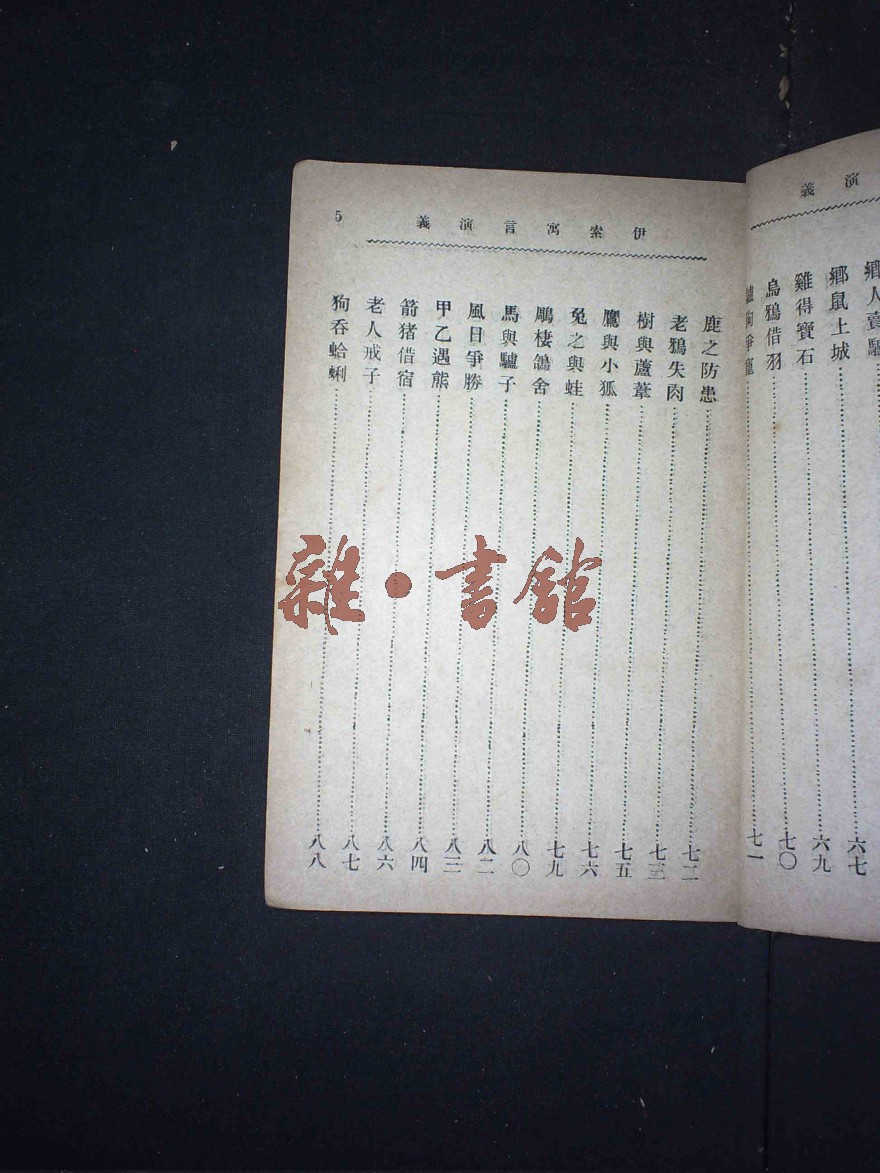 演義
鄉人賣驢
鄉鼠上城 六七
雞得寶石 六九
烏鴉借羽 七〇
驢狗爭寵 七一
伊索寓言演義
5
鹿之防患 七二
老鴉失肉 七三
樹與蘆葦 七五
鷹與小狐 七六
兔之與蛙 七九
鵰棲鴿舍 八〇
馬與驢子 八二
風日爭勝 八三
甲乙遇熊 八四
箭猪借宿 八六
老人戒子 八七
狗吞蛤蜊 八八
雜·書舘